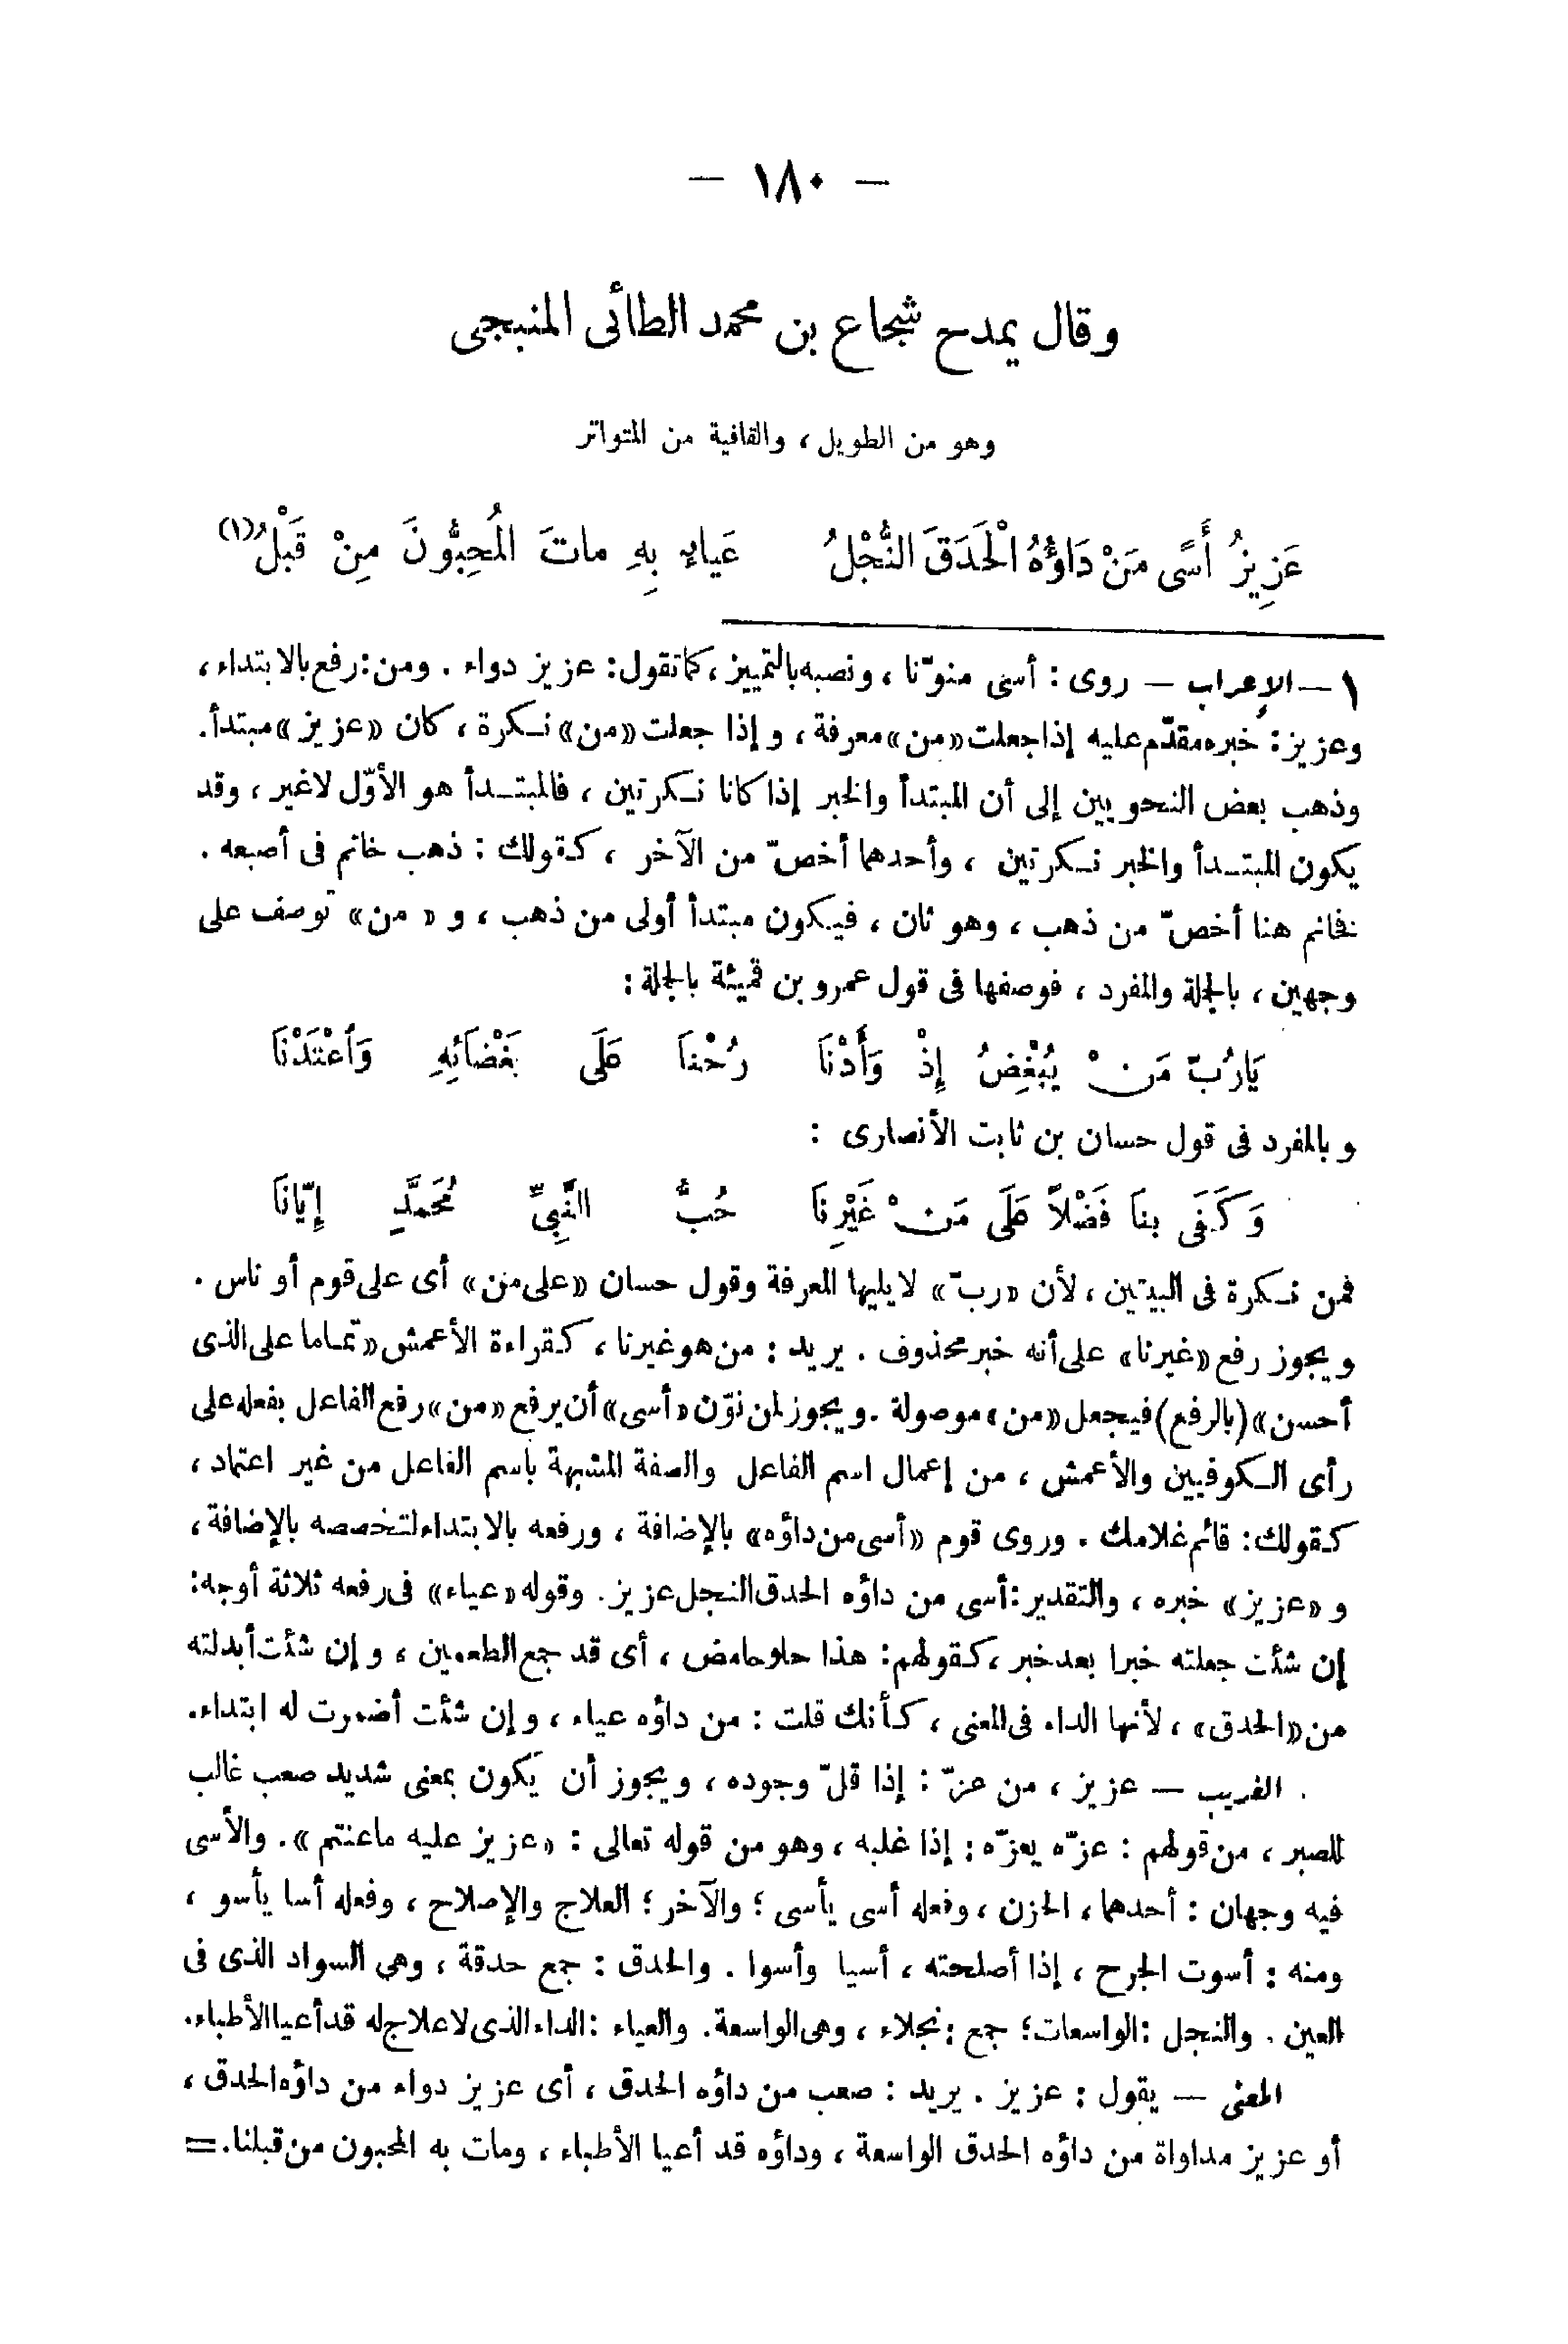 — ١٨٠ —
وقال يمدح شجاع بن محمد الطائى المنبجى
وهو من الطويل ، والقافية من المتواتر
عَزِيزُ أَسًى مَنْ دَاؤُهُ الْحَدَقَ النُّجْلُ عَياءٍ بِهِ ماتَ المُحِبُّونَ مِنْ قَبْلُ(١)
١ — الإعراب — روى : أسى منوّنا ، ونصبه بالتمييز ، كما تقول : عزيز دواء . ومن : رفع بالابتداء ،
وعزيز : خبره مقدّم عليه إذا جعلت «من» معرفة ، وإذا جعلت «من» نكرة ، كان «عزيز» مبتدأ .
وذهب بعض النحويين إلى أن المبتدأ والخبر إذا كانا نكرتين ، فالمبتدأ هو الأوّل لاغير ، وقد
يكون المبتدأ والخبر نكرتين ، وأحدهما أخصّ من الآخر ، كقولك : ذهب خاتم فى أصبعه .
فخاتم هنا أخصّ من ذهب ، وهو ثان ، فيكون مبتدأ أولى من ذهب ، و « من» توصف على
وجهين ، بالجملة والمفرد ، فوصفها فى قول عمرو بن قميئة بالجملة :
يَارُبّ مَنْ يُبْغِضُ إِذْ وَأَدْنَا رُحْنَا عَلَى بَغْضَائِهِ وَاُعْتَدْنَا
وبالمفرد فى قول حسان بن ثابت الأنصارى :
وَكَفَى بِنَا فَضْلاً عَلَى مَنْ غَيْرِنَا حُبُّ النَّبِيِّ مُحَمَّدٍ إِيّانَا
فمن نكرة فى البيتين ، لأن «ربّ» لايليها المعرفة وقول حسان «على من» أى على قوم أو ناس .
ويجوز رفع «غيرنا» على أنه خبر محذوف . يريد : من هو غيرنا ، كقراءة الأعمش «تماما على الذى
أحسن» (بالرفع) فيجعل «من» موصولة . ويجوز لمن نوّن «أسى» أن يرفع «من» رفع الفاعل بفعله على
رأى الكوفيين والأعمش ، من إعمال اسم الفاعل والصفة المشبهة باسم الفاعل من غير اعتماد ،
كقولك : قائم غلامك . وروى قوم «أسى من داؤه» بالإضافة ، ورفعه بالابتداء لتخصصه بالإضافة ،
و «عزيز» خبره ، والتقدير : أسى من داؤه الحدق النجل عزيز . وقوله «عياء» فى رفعه ثلاثة أوجه :
إن شئت جعلته خبرا بعد خبر ، كقولهم : هذا حلو حامض ، أى قد جمع الطعمين ، وإن شئت أبدلته
من «الحدق» ، لأنها الداء فى المعنى ، كأنك قلت : من داؤه عياء ، وإن شئت أضمرت له ابتداء .
الغريب — عزيز ، من عزّ : إذا قلّ وجوده ، ويجوز أن يكون بمعنى شديد صعب غالب
للصبر ، من قولهم : عزّه يعزّه : إذا غلبه ، وهو من قوله تعالى : «عزيز عليه ماعنتم» . والأسى
فيه وجهان : أحدهما ، الحزن ، وفعله أسى يأسى ؛ والآخر ؛ العلاج والإصلاح ، وفعله أسا يأسو ،
ومنه : أسوت الجرح ، إذا أصلحته ، أسيا وأسوا . والحدق : جمع حدقة ، وهى السواد الذى فى
العين . والنجل : الواسعات ؛ جمع : نجلاء ، وهى الواسعة . والعياء : الداء الذى لاعلاج له قد أعيا الأطباء .
المعنى — يقول : عزيز . يريد : صعب من داؤه الحدق ، أى عزيز دواء من داؤه الحدق ،
أو عزيز مداواة من داؤه الحدق الواسعة ، وداؤه قد أعيا الأطباء ، ومات به المحبون من قبلنا . =